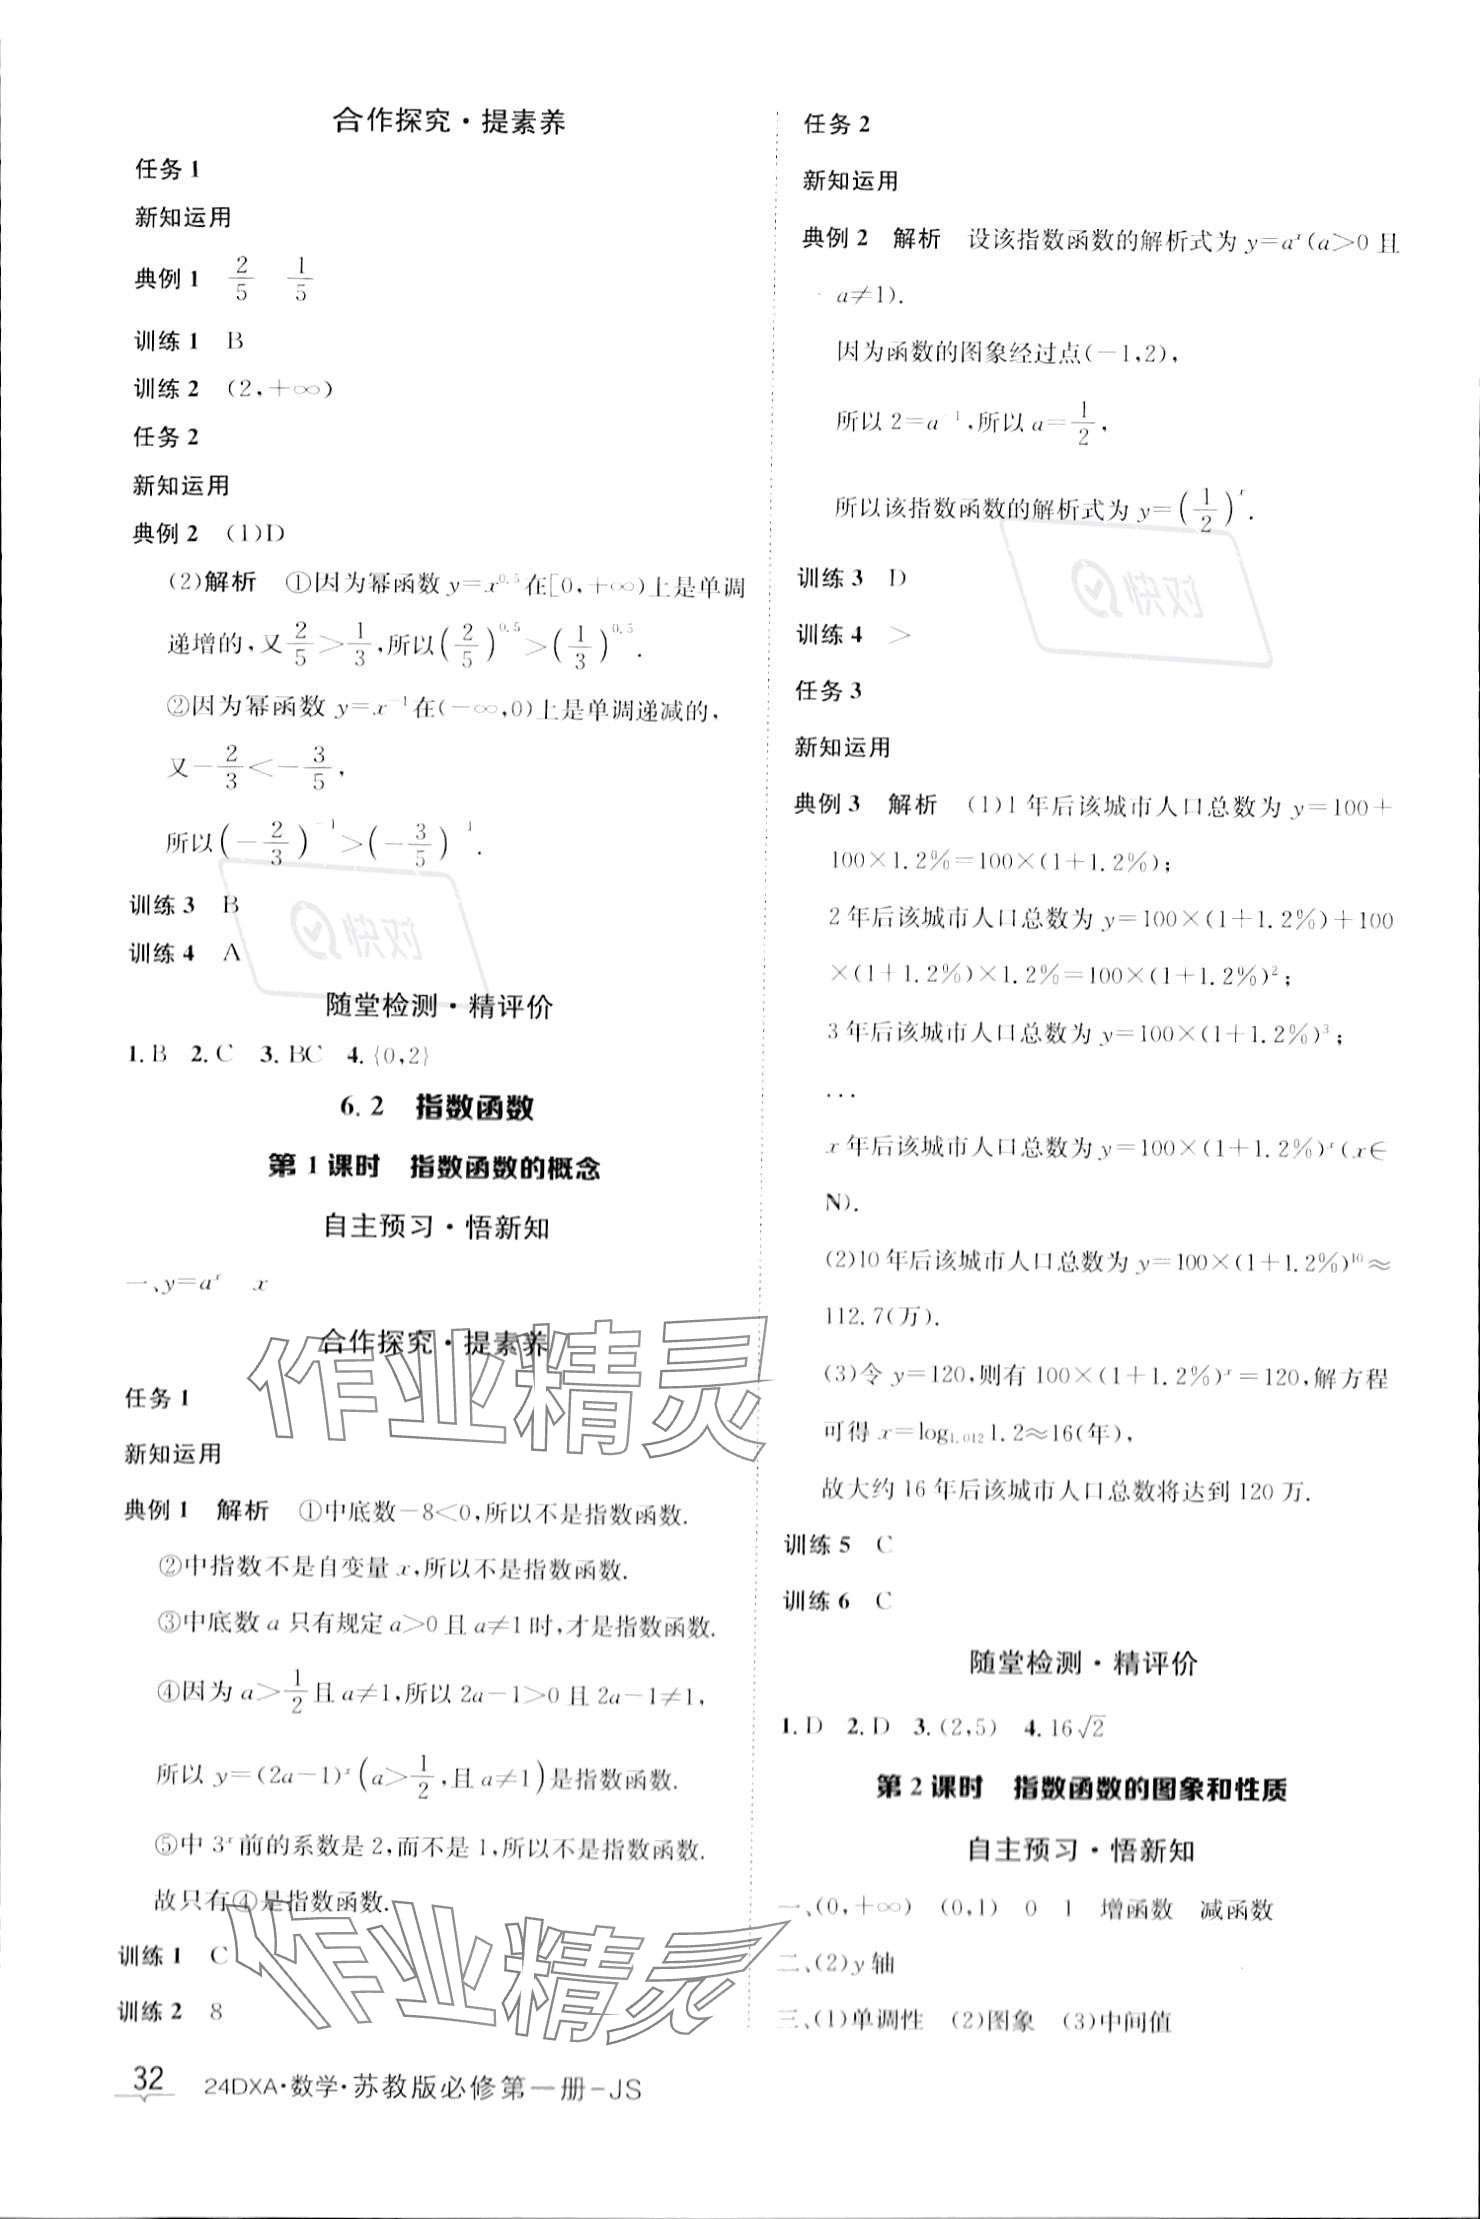 合作探究·提素养
任务1
新知运用
典例1 2/5 1/5
训练1 B
训练2 (2,+∞)
任务2
新知运用
典例2 (1)D
(2)解析 ①因为幂函数 y=x^0.5在[0,+∞)上是单调
递增的,又2/5>1/3,所以(2/5)^0.5>(1/3)^0.5.
②因为幂函数 y=x^-1在(-∞,0)上是单调递减的,
又-2/3<-3/5,
所以(-2/3)^-1>(-3/5)^-1.
训练3 B
训练4 A
随堂检测·精评价
1.B 2.C 3.BC 4.{0,2}
6.2 指数函数
第1课时 指数函数的概念
自主预习·悟新知
一、y=a^x x
合作探究·提素养
任务1
新知运用
典例1 解析 ①中底数-8<0,所以不是指数函数.
②中指数不是自变量 x,所以不是指数函数.
③中底数 a 只有规定 a>0且 a≠1时,才是指数函数.
④因为 a>1/2且 a≠1,所以 2a-1>0且 2a-1≠1,
所以 y=(2a-1)^x(a>1/2,且 a≠1)是指数函数.
⑤中 3^x前的系数是 2,而不是 1,所以不是指数函数.
故只有④是指数函数.
训练1 C
训练2 8
32 24DXA·数学·苏教版必修第一册-JS
任务2
新知运用
典例2 解析 设该指数函数的解析式为 y=a^x(a>0且
a≠1).
因为函数的图象经过点(-1,2),
所以 2=a^-1,所以 a=1/2,
所以该指数函数的解析式为 y=(1/2)^x.
训练3 D
训练4 >
任务3
新知运用
典例3 解析 (1)1年后该城市人口总数为 y=100+
100×1.2%=100×(1+1.2%);
2年后该城市人口总数为 y=100×(1+1.2%)+100
×(1+1.2%)×1.2%=100×(1+1.2%)^2;
3年后该城市人口总数为 y=100×(1+1.2%)^3;
...
x年后该城市人口总数为 y=100×(1+1.2%)^x(x∈
N).
(2)10年后该城市人口总数为 y=100×(1+1.2%)^10≈
112.7(万).
(3)令 y=120,则有 100×(1+1.2%)^x=120,解方程
可得 x=log_1.012 1.2≈16(年),
故大约 16年后该城市人口总数将达到 120万.
训练5 C
训练6 C
随堂检测·精评价
1.D 2.D 3.(2,5) 4.16√2
第2课时 指数函数的图象和性质
自主预习·悟新知
一、(0,+∞) (0,1) 0 1 增函数 减函数
二、(2)y轴
三、(1)单调性 (2)图象 (3)中间值
快对
快对
作业精灵
作业精灵